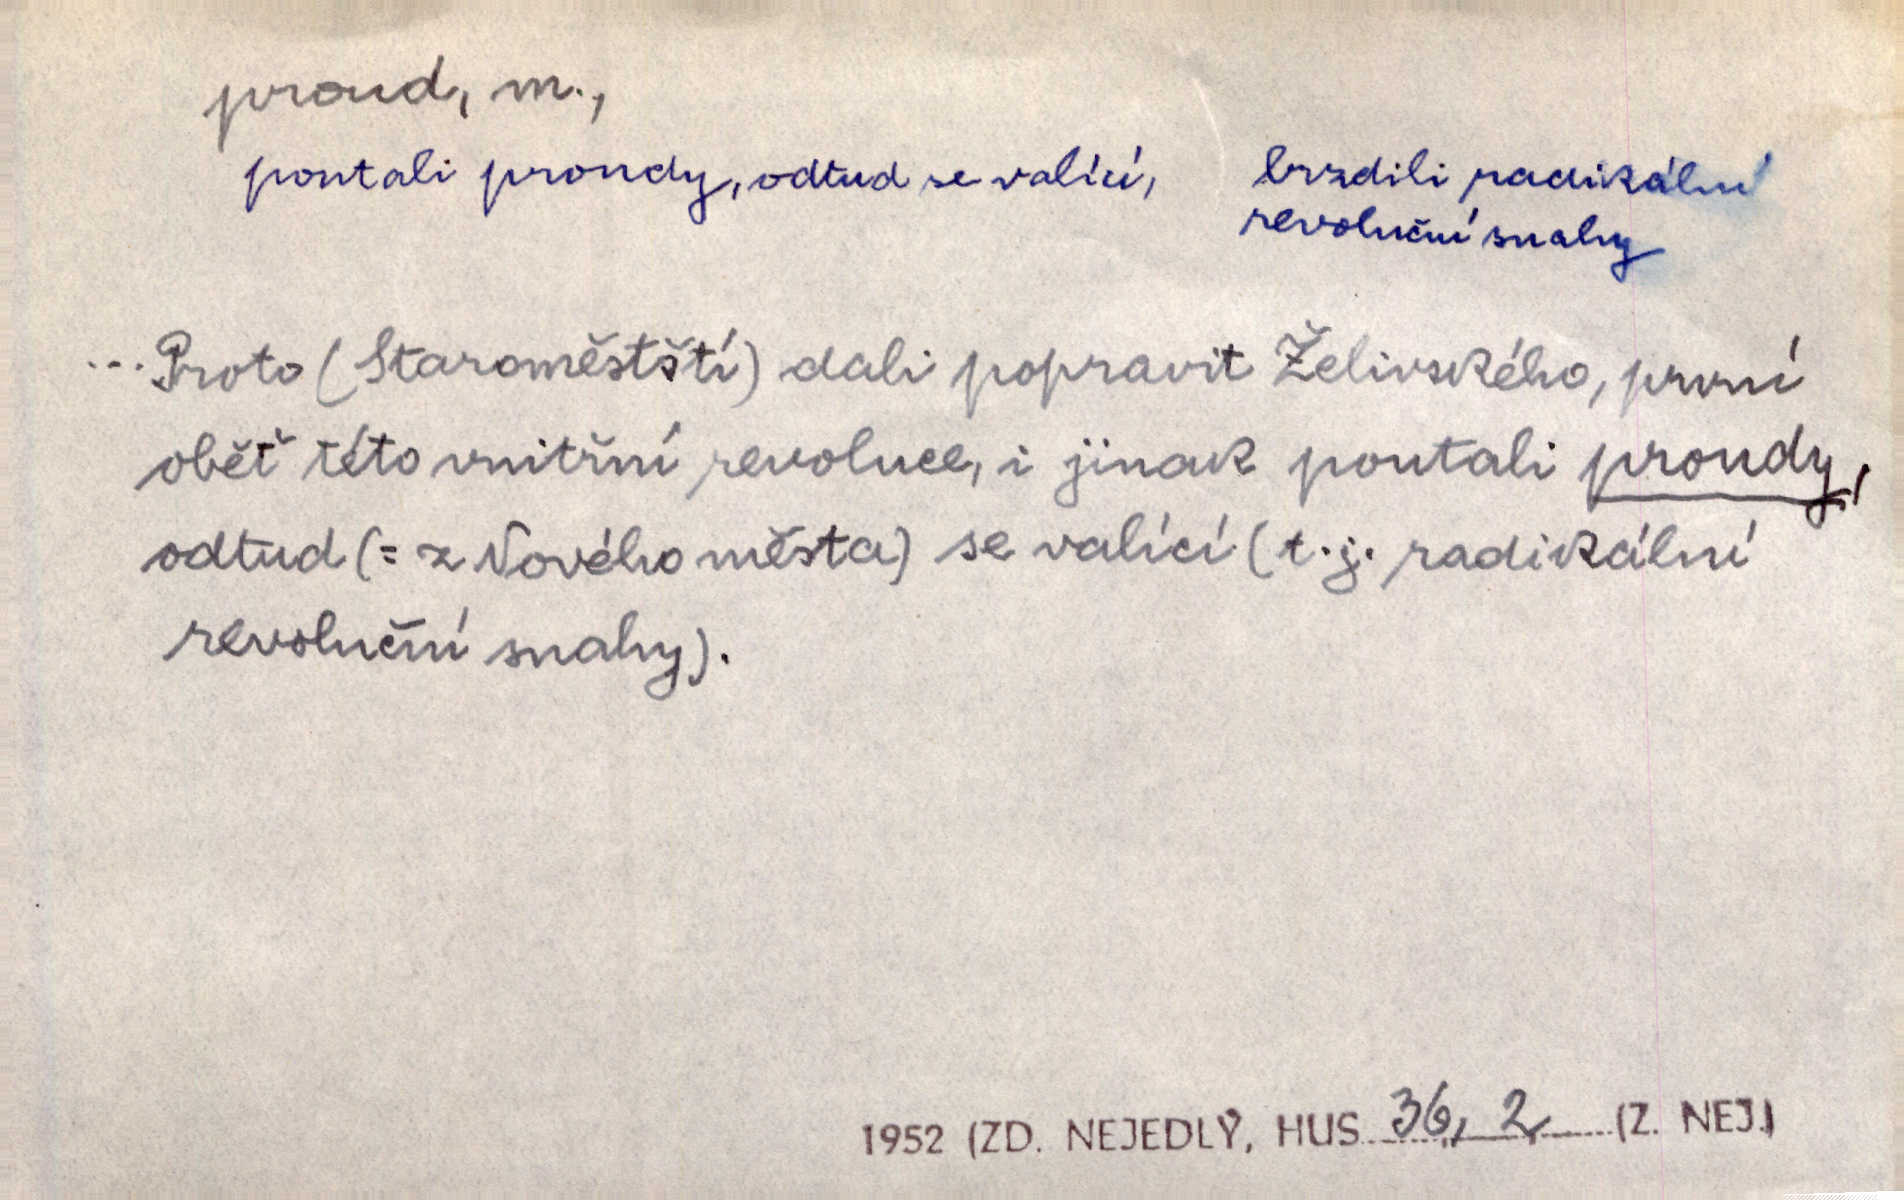 proud, m.,
poutali proudy, odtud se valící, brzdili radikální
revoluční snahy
... Proto (Staroměstští) dali popravit Želivského, první
oběť této vnitřní revoluce, i jinak poutali proudy,
odtud (= z Nového města) se valící (t.j. radikální
revoluční snahy).
1952 (ZD. NEJEDLÝ, HUS 36, 2 (Z. NEJ.)